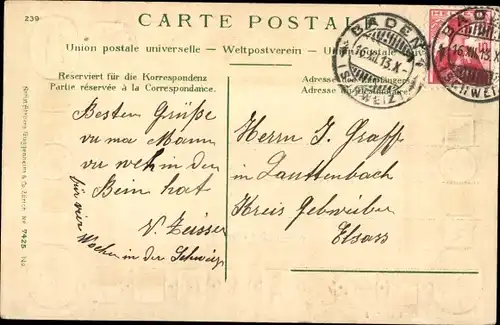 239
CARTE POSTALE
Union postale universelle – Weltpostverein –
Reserviert für die Korrespondenz
Partie réservée à la Correspondance.
Besten Grüße
vu ma Mann
vu weh in der
Bein hat
V. Zeisser
für vier
Wochen in der Schweiz
BADEN
16.XII.13.X
(SCHWEIZ)
BADEN
16.XII.13.X
(SCHWEIZ)
Herrn J. Graff
in Lauttenbach
Kreis Gebweiler
Elsass
Guggenheim & Co. Zürich No 7425